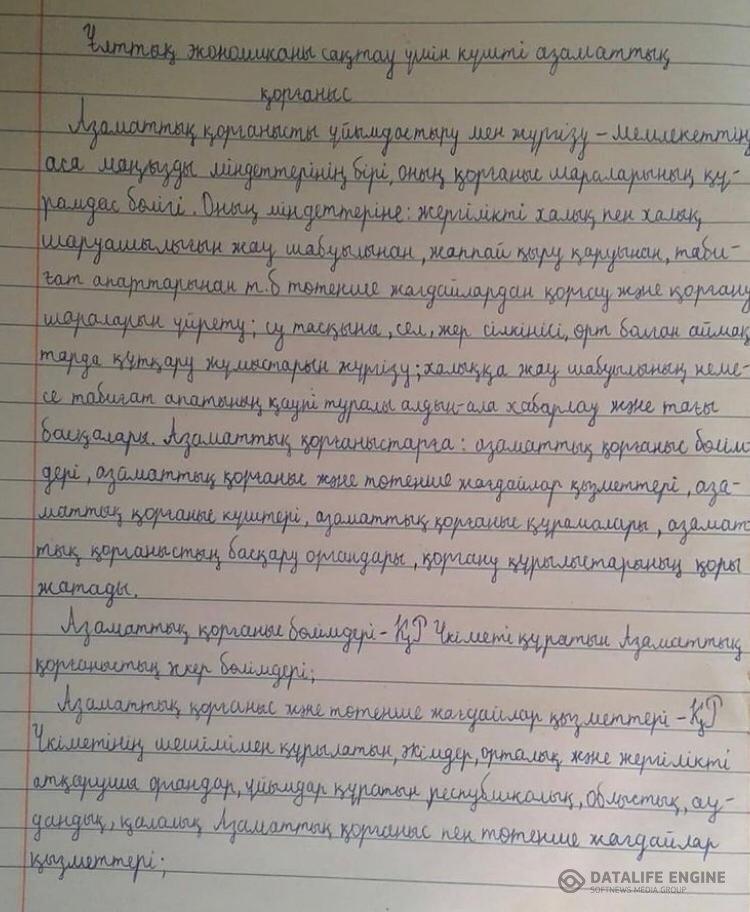 Ұлттық экономиканы сақтау үшін күшті азаматтық
қорғаныс
Азаматтық қорғанысты ұйымдастыру мен жүргізу – мемлекеттің
аса маңызды міндеттерінің бірі, оның қорғаныс шараларының құ-
рамдас бөлігі. Оның міндеттеріне: жергілікті халық пен халық
шаруашылығын жау шабуылынан, жаппай қыру қаруынан, таби-
ғат апарттарынан т.б төтенше жағдайлардан қорғау және қорғану
шараларын үйрету; су тасқыны, сел, жер сілкінісі, өрт болған аймақ
тарда құтқару жұмыстарын жүргізу; халыққа жау шабуылының неме-
се табиғат апатының қаупі туралы алдын-ала хабарлау және тағы
басқалары. Азаматтық қорғаныстарға: азаматтық қорғаныс бөлім
дері, азаматтық қорғаныс және төтенше жағдайлар қызметтері, аза-
маттық қорғаныс күштері, азаматтық қорғаныс құрамалары, азамат
тық қорғаныстың басқару органдары, қорғану құрылыстарының қоры
жатады.
Азаматтық қорғаныс бөлімдері - ҚР Үкіметі құратын Азаматтық
қорғаныстың әскер бөлімдері;
Азаматтық қорғаныс және төтенше жағдайлар қызметтері - ҚР
Үкіметінің шешімімен құрылатын, әкімдер, орталық және жергілікті
атқарушы органдар, ұйымдар құратын республикалық, облыстық, ау-
дандық, қалалық Азаматтық қорғаныс пен төтенше жағдайлар
қызметтері;
DATALIFE ENGINE
SOFTNEWS MEDIA GROUP